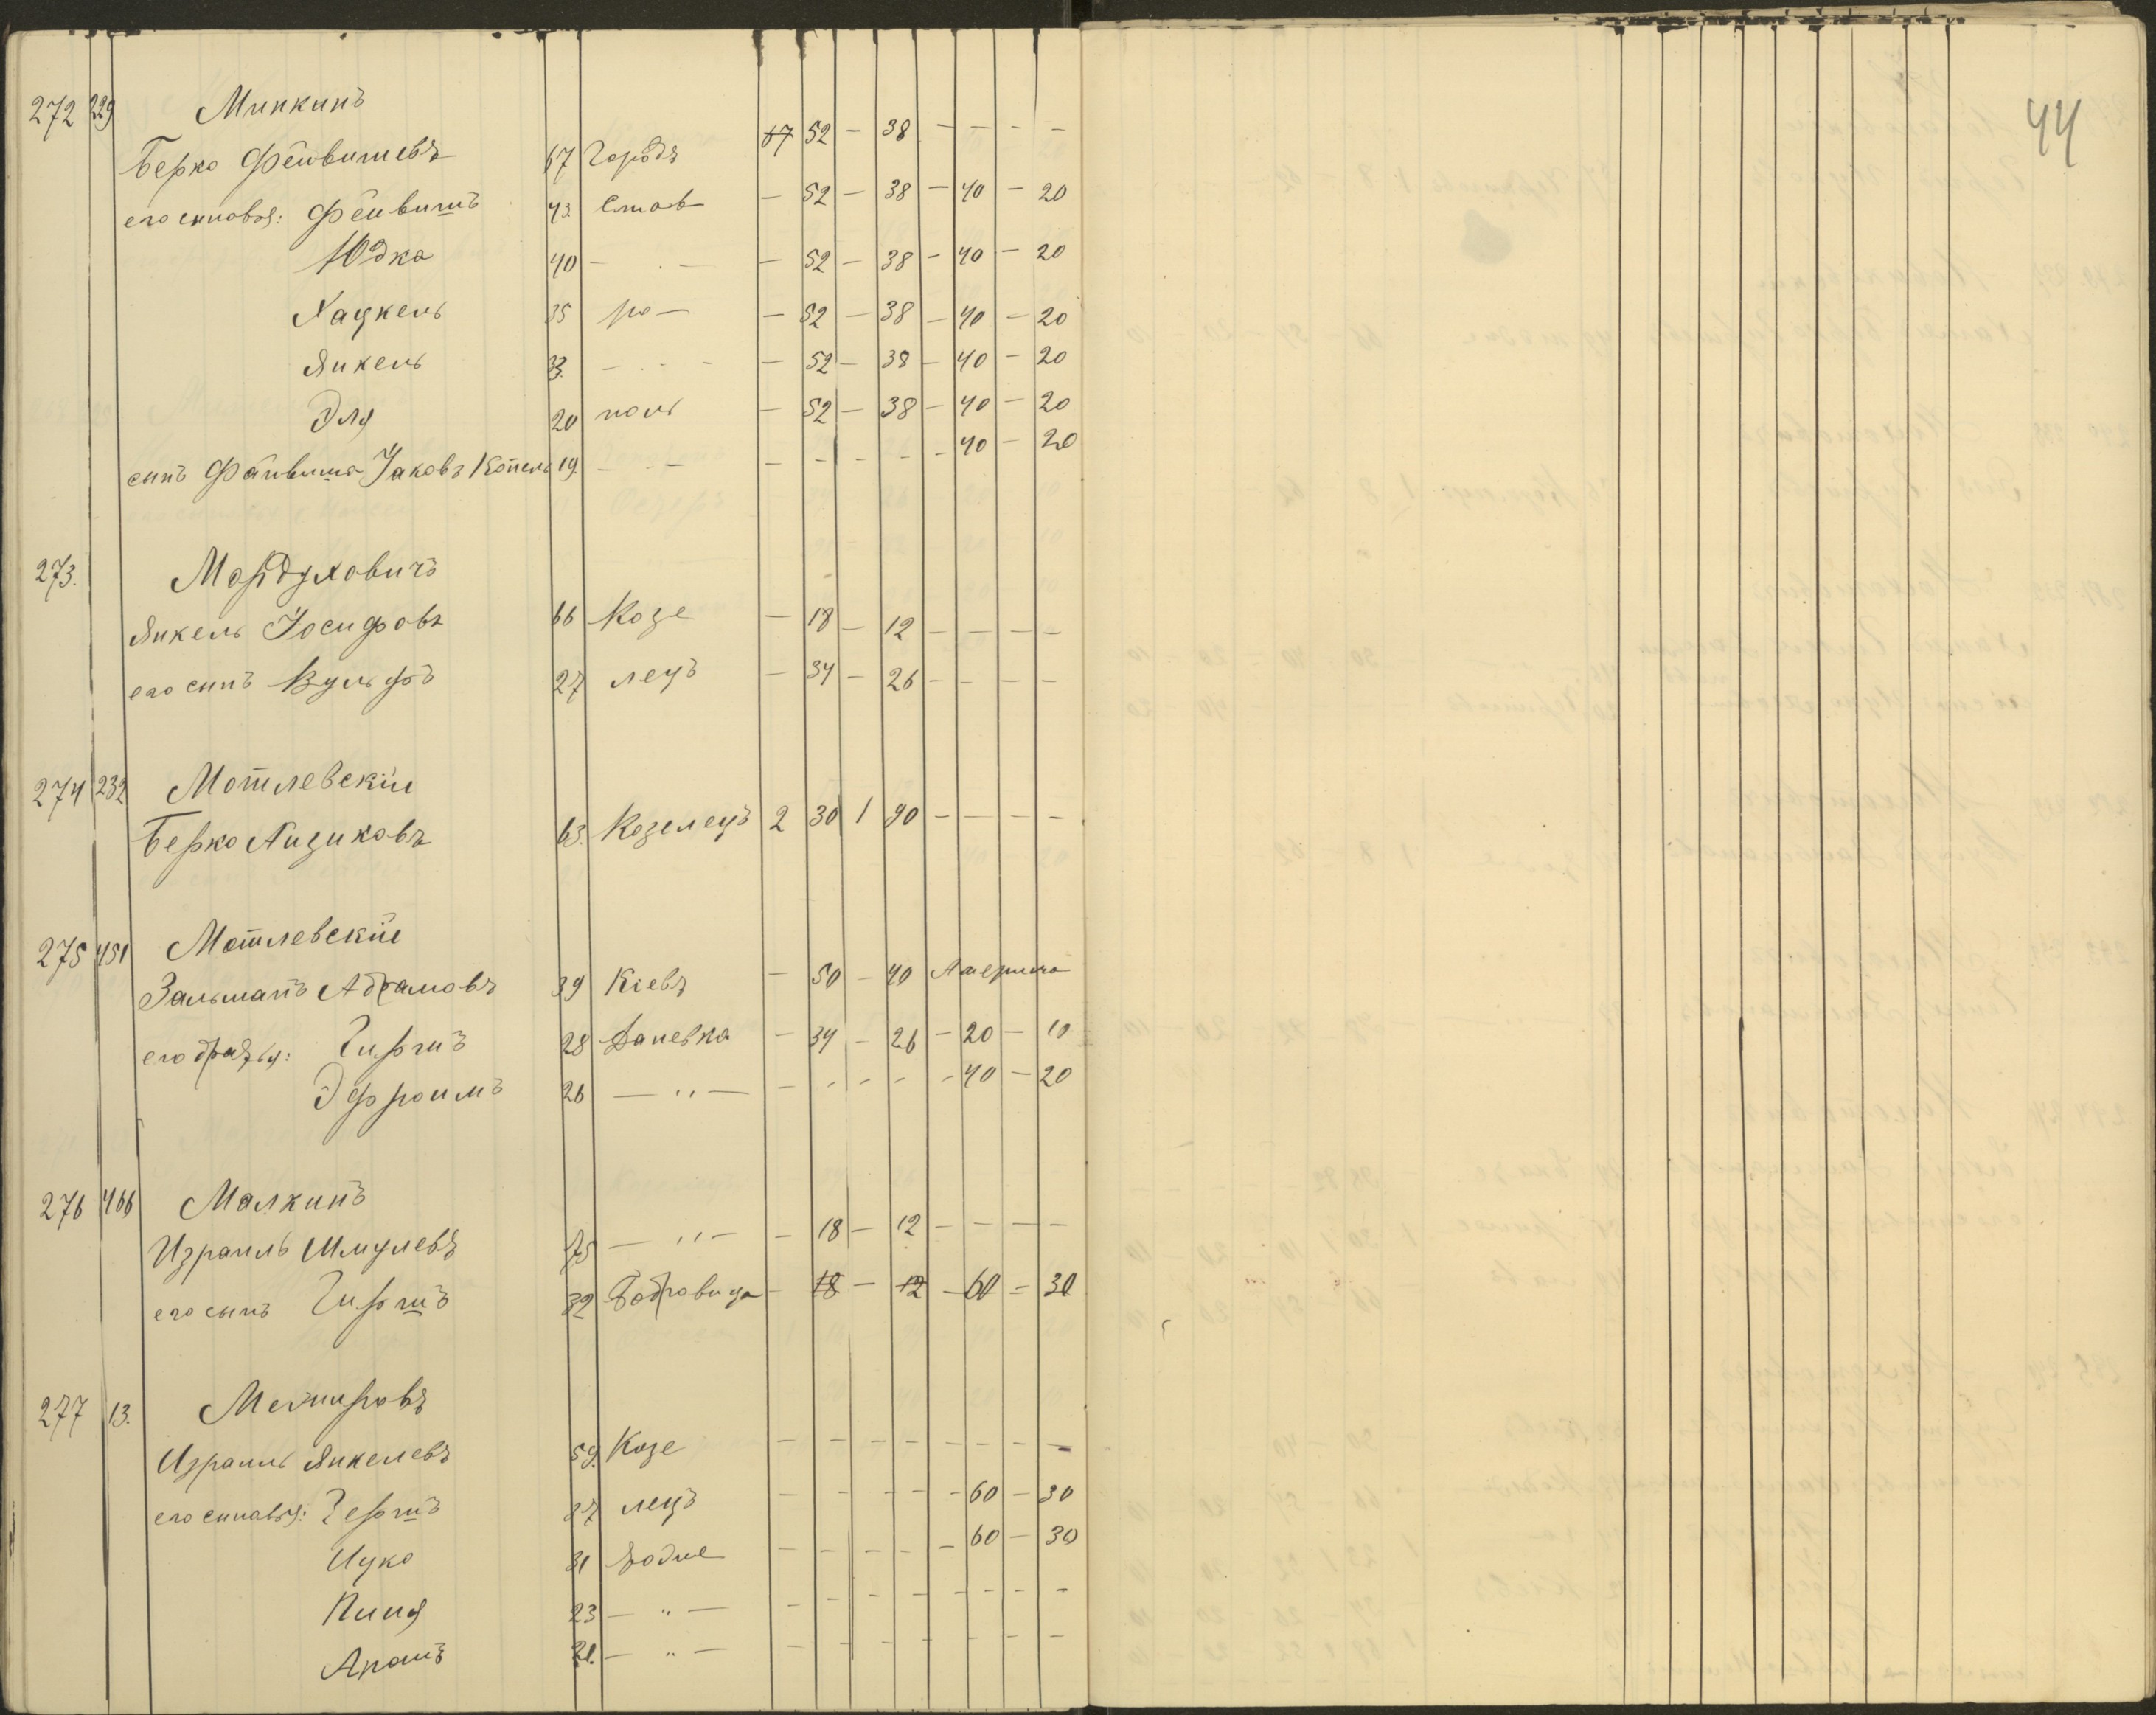 44
272 229 Минкинъ
Берко Фейвишевъ 67 Городъ 67 52 — 38 — — — —
его сыновья: Фейвишъ 43. Став — 52 — 38 — 40 — 20
Юдка 40 — . — — 52 — 38 — 40 — 20
Хацкель 35 ро — — 52 — 38 — 40 — 20
Янкель 33. — . — — 52 — 38 — 40 — 20
Эля 20 поль — 52 — 38 — 40 — 20
сынъ Файвиша Іаковъ Копель 19. — . — — — — — — 40 — 20
273. Мордуховичъ
Янкель Іосифовъ 66 Козе — 18 — 12 — — — —
его сынъ Вульфъ 27 лецъ — 34 — 26 — — — —
274 232 Мотлевскій
Берко Айзиковъ 63. Козелецъ 2 30 1 90 — — — —
275 451 Мотлевскій
Зальманъ Абрамовъ 39 Кіевъ — 50 — 40 Америка
его братья: Гиршъ 28 Даневка — 34 — 26 — 20 — 10
Эфроимъ 26 — „ — — — — — — 40 — 20
276 466 Малкинъ
Израиль Шмулевъ 75 — „ — — 18 — 12 — — — —
его сынъ Гиршъ 32 Бобровица — 18 — 12 — 60 — 30
277 13.
Израиль Янкелевъ 59. Козе — — — — — — — —
его сыновья: Гершъ 37 лецъ — — — — — 60 — 30
Ицко 31 — — — — — 60 — 30
Пиня 23 — „ — — — — — — — — —
Аронъ 21. — „ — — — — — — — — —